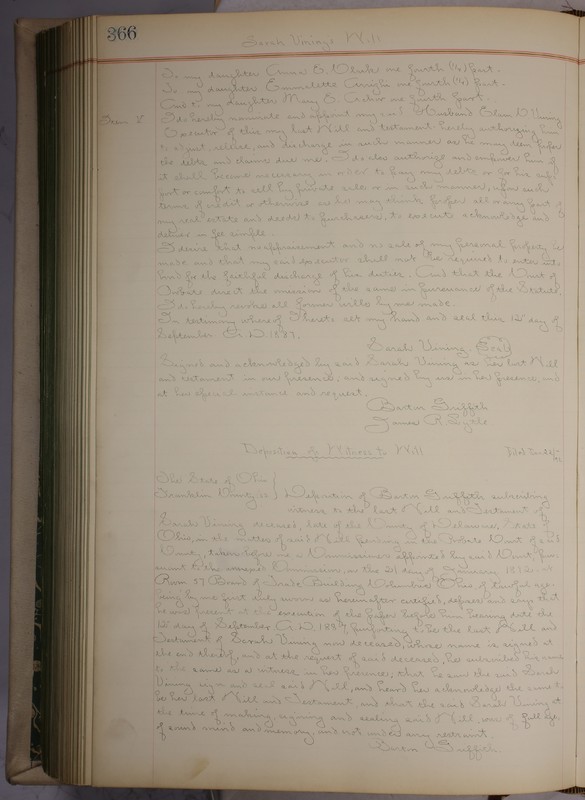 366
Sarah Vining's Will
To my daughter Anna E. one fourth (1/4) part.
To my daughter Emmarette Wright one fourth (1/4) part.
And to my daughter Mary E. one fourth part.
Item 8 I do hereby nominate and appoint my said Husband Elam D. Vining
Executor of this my last Will and testament hereby authorizing him
to adjust, release, and discharge in such manner as he may deem proper
the debts and claims due me. I do also authorize and empower him if
it shall become necessary in order to pay my debts or for his sup-
port or comfort to sell by private sale or in such manner, upon such
terms of credit or otherwise as he may think proper all or any part of
my real estate and deeds to purchasers, to execute acknowledge and
deliver in fee simple.
I desire that no appraisement and no sale of my personal property be
made and that my said executor shall not be required to enter into
bond for the faithful discharge of his duties. And that the Court of
Probate direct the omission of the same in pursuance of the Statute.
I do hereby revoke all former wills by me made.
In testimony whereof I hereto set my hand and seal this 12 day of
September A.D. 1887.
Sarah Vining. Seal
Signed and acknowledged by said Sarah Vining as her last Will
and testament in our presence, and signed by us in her presence, and
at her special instance and request.
Burton Griffith
James R. Lytle
Deposition of Witness to Will
The State of Ohio
Franklin County, ss. Deposition of Burton Griffith subscribing
witness to the last Will and Testament of
Sarah Vining deceased, late of the County of Delaware, State of
Ohio, in the matter of said Will pending in the Probate Court of said
County, taken before me a Commissioner appointed by said Court, pur-
suant to the annexed Commission, on the 21 day of January 1892 at
Room 57 Board of Trade Building Columbus Ohio, of lawful age
being by me first duly sworn as hereinafter certified, deposes and says that
he was present at the execution of the paper before him bearing date the
12 day of September A.D. 1887, purporting to be the last Will and
Testament of Sarah Vining now deceased, whose name is signed at
the end thereof, and at the request of said deceased, he subscribed his name
to the same as a witness in her presence; that he saw the said Sarah
Vining sign and seal said Will, and heard her acknowledge the same to
be her last Will and Testament, and that the said Sarah Vining at
the time of making, signing and sealing said Will, was of full age,
of sound mind and memory and not under any restraint.
Burton Griffith.